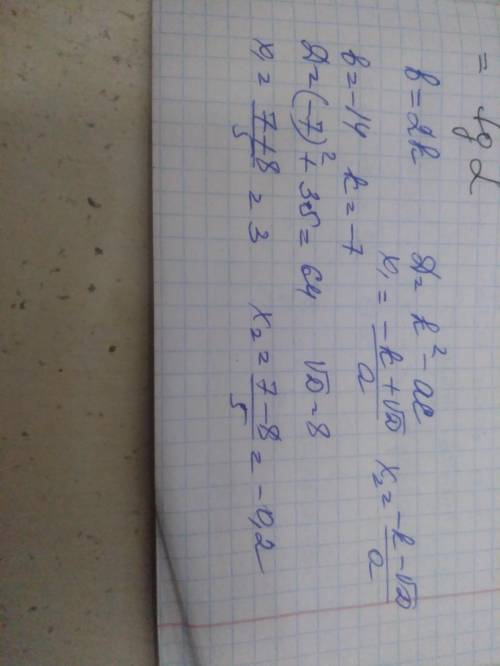 = tg α
b = 2k   D = k² - ac
x₁ = (-k + √D)/a   x₂ = (-k - √D)/a
b = -14   k = -7
D = (-7)² + 35 = 64   √D = 8
x₁ = (7 + 8)/5 = 3   x₂ = (7 - 8)/5 = -0,2